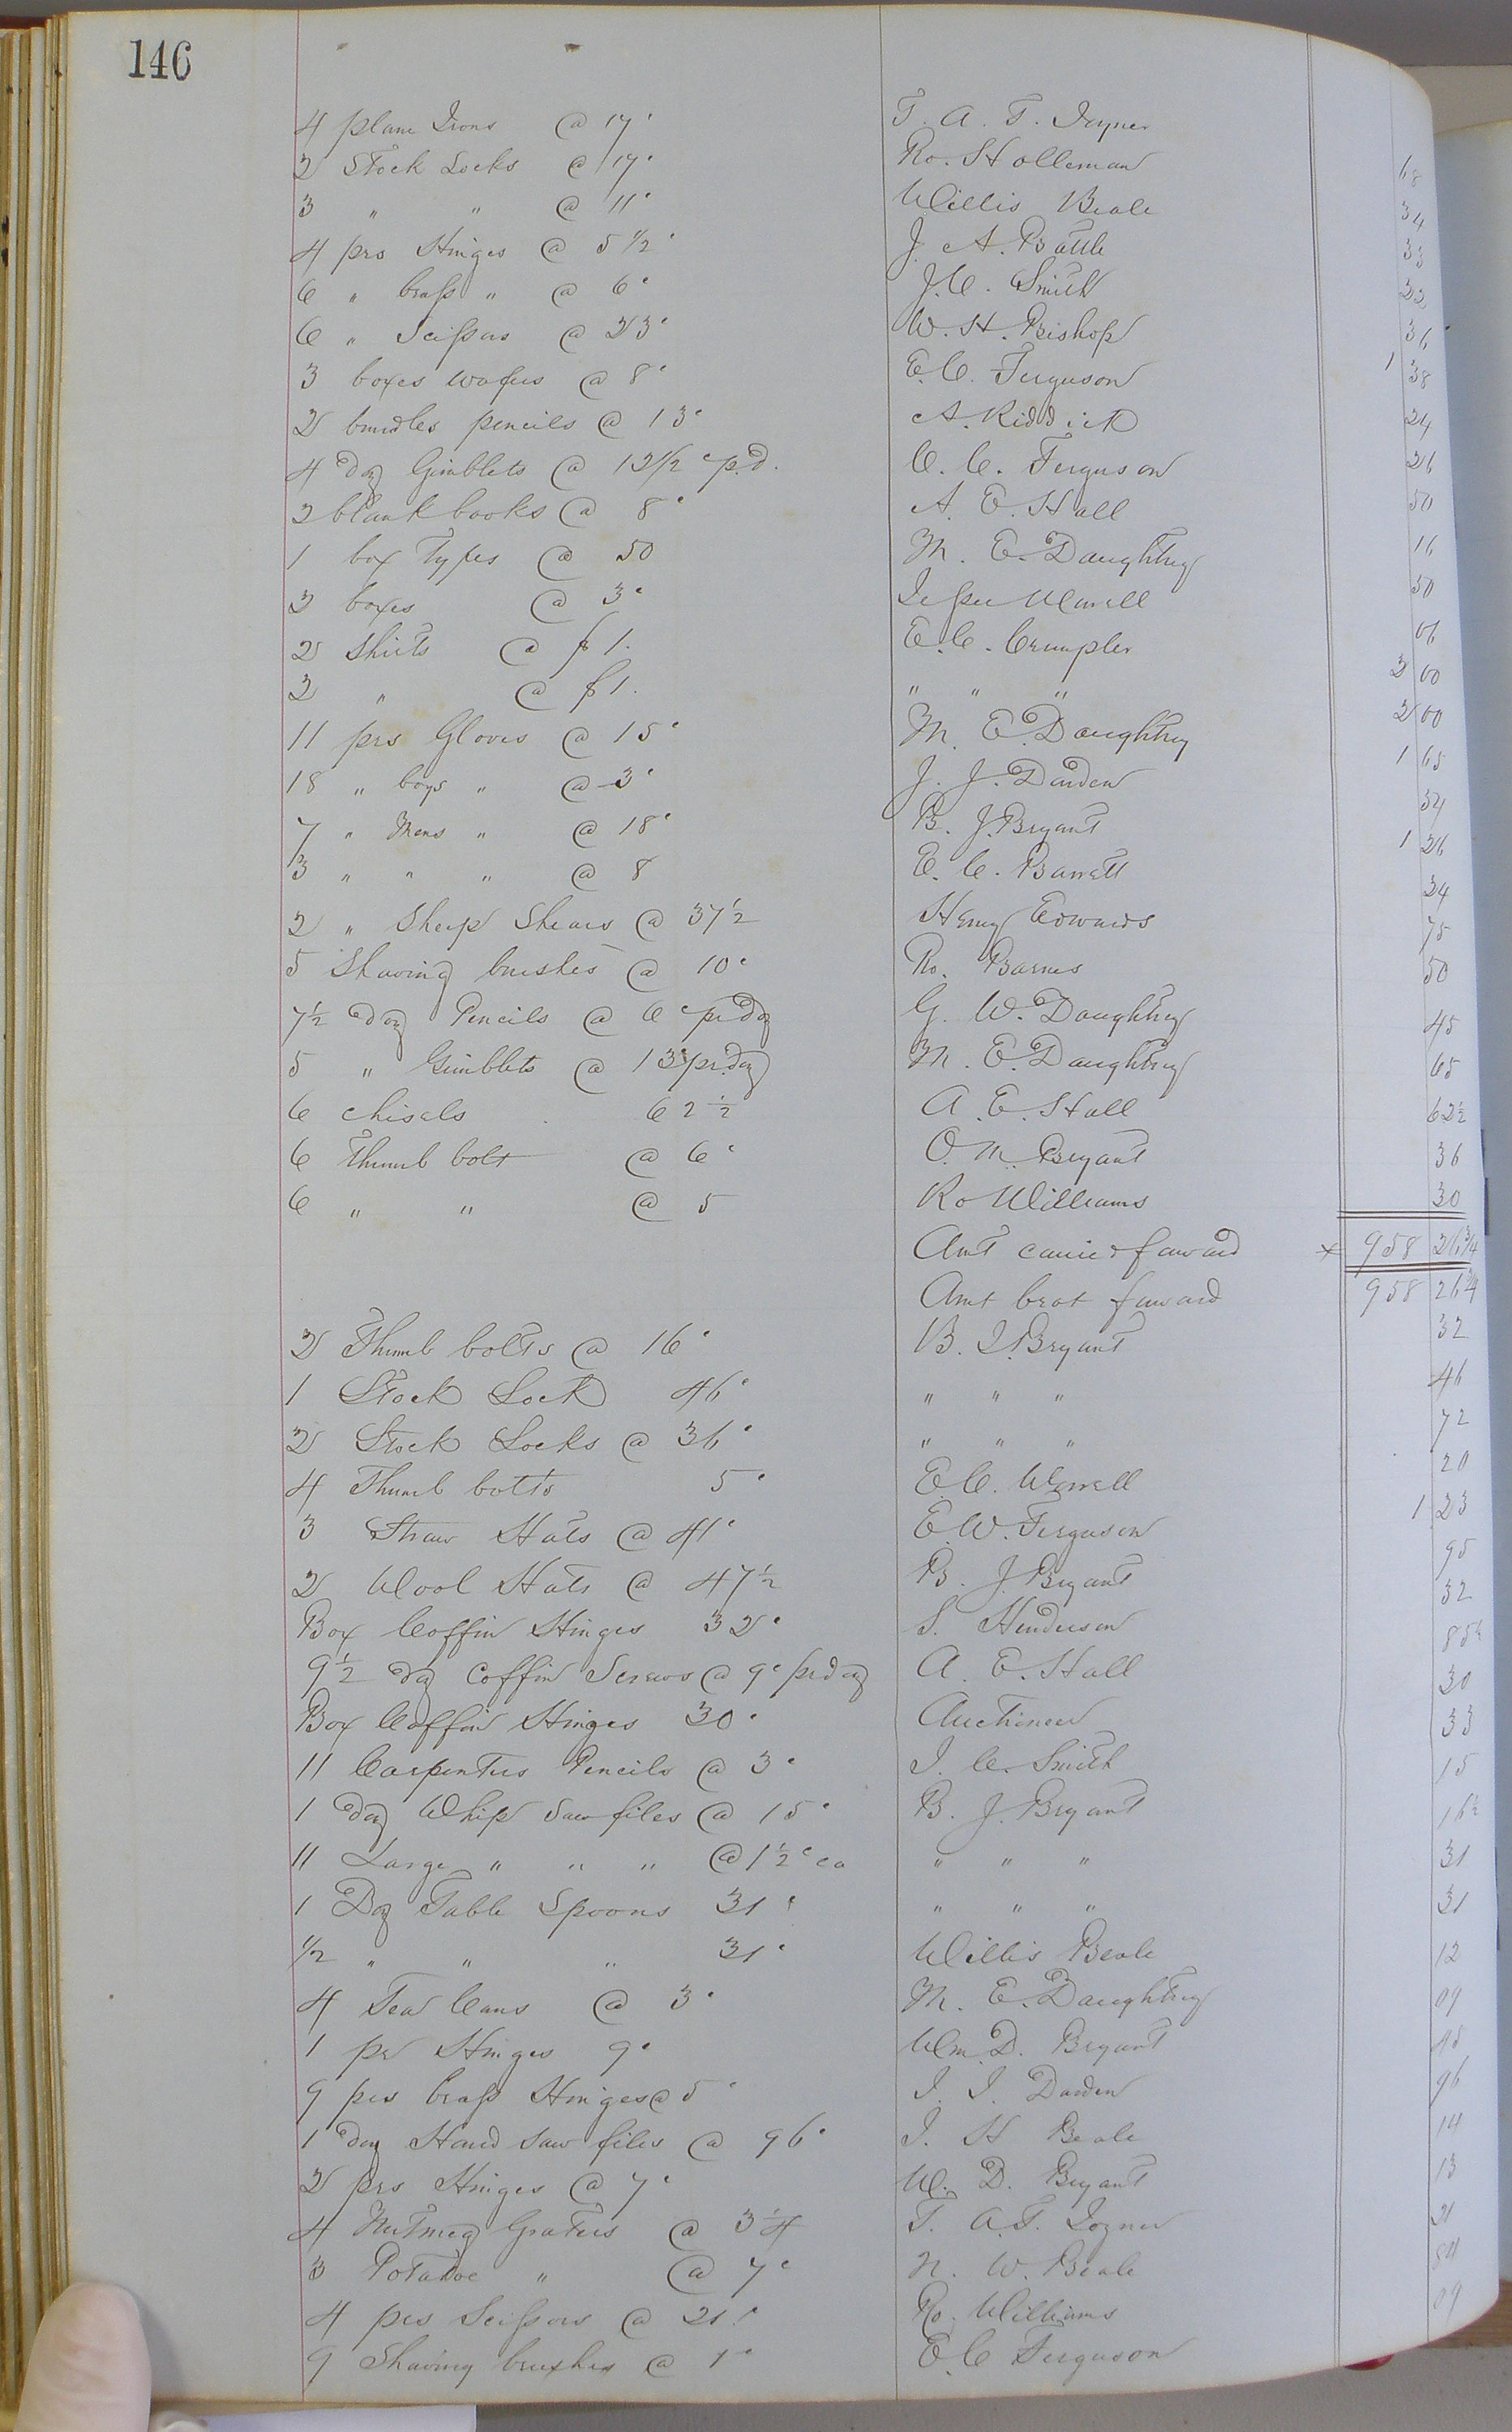 146
4 plane Irons @ 17c T. A. T. Joyner 68
2 Stock Locks @ 17c Ro. Holleman 34
3 " " @ 11c Willis Beale 33
4 prs Hinges @ 5 1/2c J. A. Battle 22
6 " brass " @ 6c J. C. Smith 36
6 " Scissors @ 23c W. H. Bishop 1 38
3 boxes wafers @ 8c E. C. Ferguson 24
2 bundles pencils @ 13c A. Riddick 26
4 Doz Gimblets @ 12 1/2c p.d. C. C. Ferguson 50
2 blank books @ 8c A. E. Hall 16
1 box Types @ 50 M. E. Daughtrey 50
2 boxes @ 3c Jesse Worrell 06
2 Shirts @ $1. E. C. Crumpler 2 00
2 " @ $1. " " " 2 00
11 prs Gloves @ 15c M. E. Daughtrey 1 65
18 " boys " @ 3c J. J. Darden 54
7 " Mens " @ 18c B. J. Bryant 1 26
3 " " " @ 8 E. C. Barrett 24
2 " Sheep Shears @ 37 1/2 Henry Edwards 75
5 Shaving brushes @ 10c Ro. Barnes 50
7 1/2 Doz Pencils @ 6c pr Doz G. W. Daughtrey 45
5 " Gimblets @ 13c pr. doz M. E. Daughtrey 65
6 chisels 62 1/2 A. E. Hall 62 1/2
6 Thumb bolt @ 6c O. M. Bryant 36
6 " " @ 5 Ro Williams 30
Amt carried forward 958 26 3/4
Amt brot forward 958 26 3/4
2 Thumb bolts @ 16c B. J. Bryant 32
1 Stock Lock 46c " " " 46
2 Stock Locks @ 36c " " " 72
4 Thumb bolts 5c E. C. Worrell 20
3 Straw Hats @ 41c E. W. Ferguson 1 23
2 Wool Hats @ 47 1/2 B. J. Bryant 95
Box Coffin Hinges 32c S. Henderson 32
9 1/2 doz Coffin Screws @ 9c pr doz A. E. Hall 85 1/2
Box Coffin Hinges 30c Auctioneer 30
11 Carpenters Pencils @ 3c J. C. Smith 33
1 Doz Whip Saw files @ 15c B. J. Bryant 15
11 Large " " " @ 1 1/2c ea " " " 16 1/2
1 Doz Table Spoons 31c " " " 31
1/2 " " " 31c Willis Beale 31
4 Tea Cans @ 3c M. E. Daughtrey 12
1 pr Hinges 9c Wm. D. Bryant 09
9 prs brass Hinges @ 5c J. J. Darden 45
1 Doz Hand Saw files @ 96c J. H Beale 96
2 prs Hinges @ 7c W. D. Bryant 14
4 Nutmeg Graters @ 3 1/4 T. A. T. Joyner 13
3 Potatoe " @ 7c N. W. Beale 21
4 prs Scissors @ 21c Ro. Williams 84
9 Shaving brushes @ 1c E C Ferguson 09